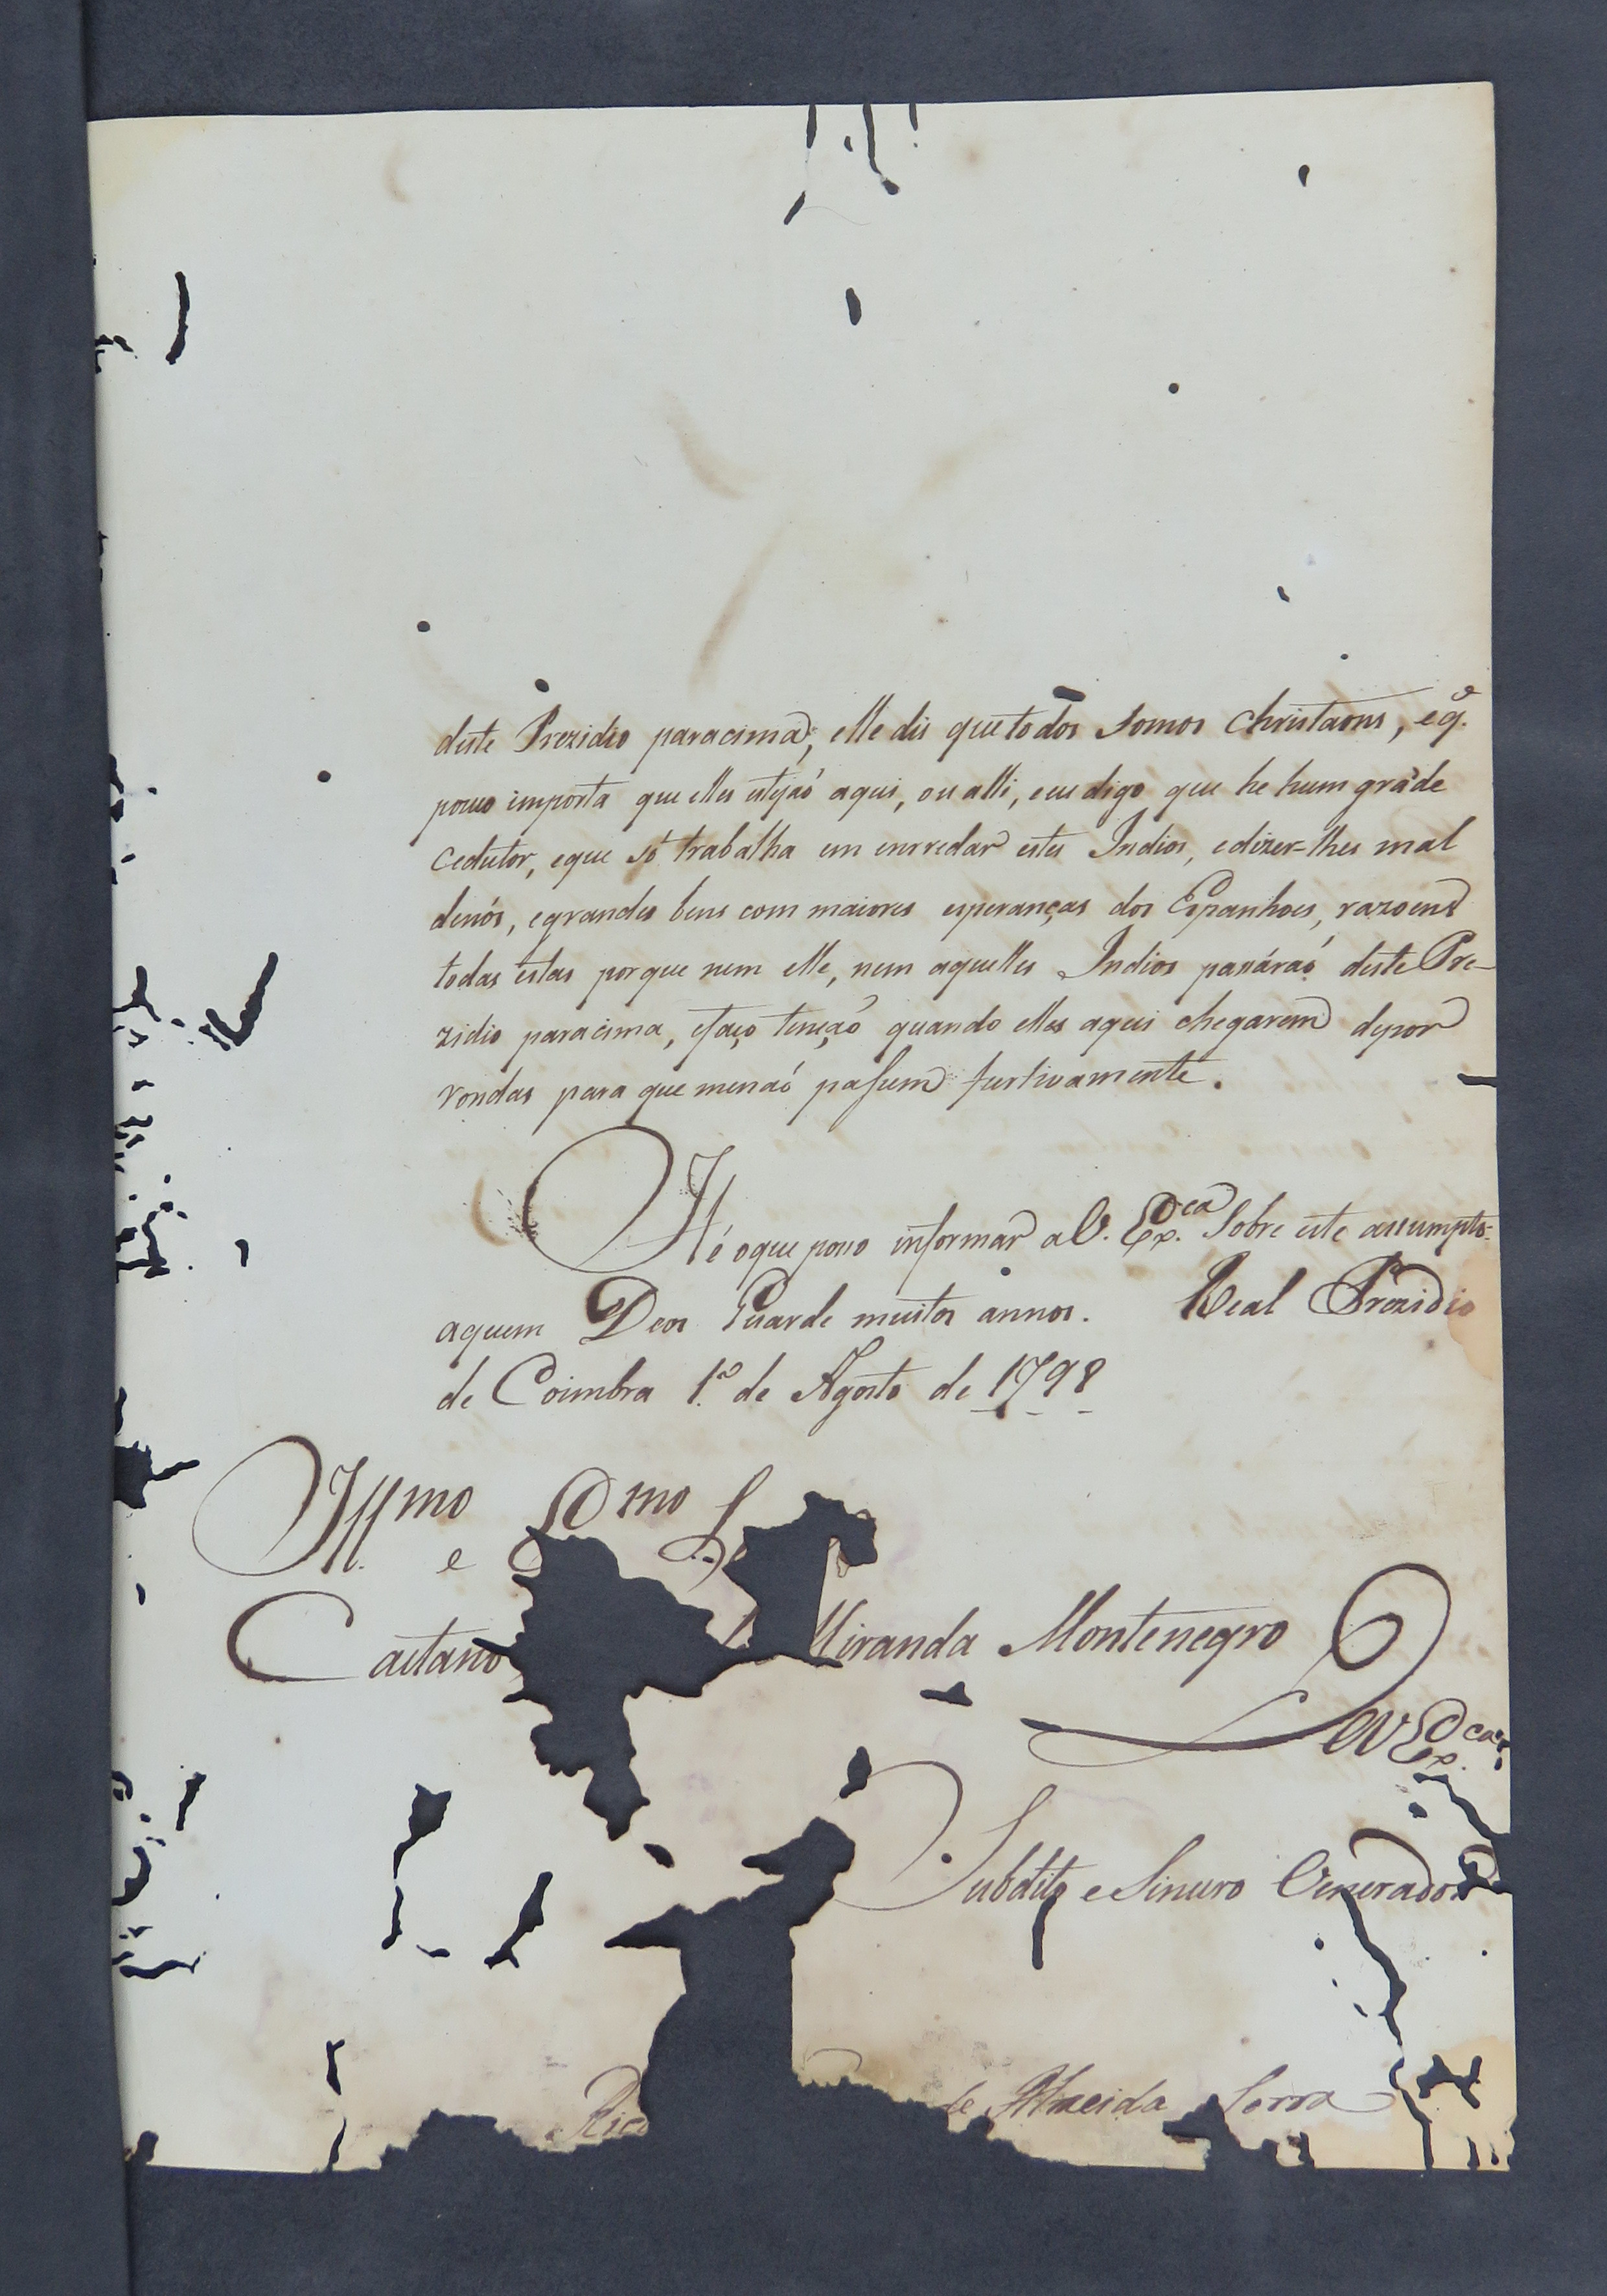 deste Prezidio paracima, elle dis que todos somos Christaons, e q̃.
pouco importa que elles estejaó aqui, ou alli, eeu digo que he hum grãde
cedutor, eque só trabalha em enrredar estes Indios, edizer-lhes mal
denós, egrandes bens com maiores esperanças dos Espanhoes, razoens
todas estas porque nem elle, nem aquelles Indios pasáráõ deste Pre-
zidio paracima, efaço tençaó quando elles aqui chegarem depor
rondas para que menaó passem furtivamente.
Hé oque posso informar aV. Exca. Sobre este assumpto:
aquem Deos Guarde muitos annos. Real Prezidio
de Coimbra 1.º de Agosto de 1798
Illmo. e mo S
Caetano Miranda Montenegro
DeV Exca.
Subdito e Sincero Venerador
Ric de Almeida Serra